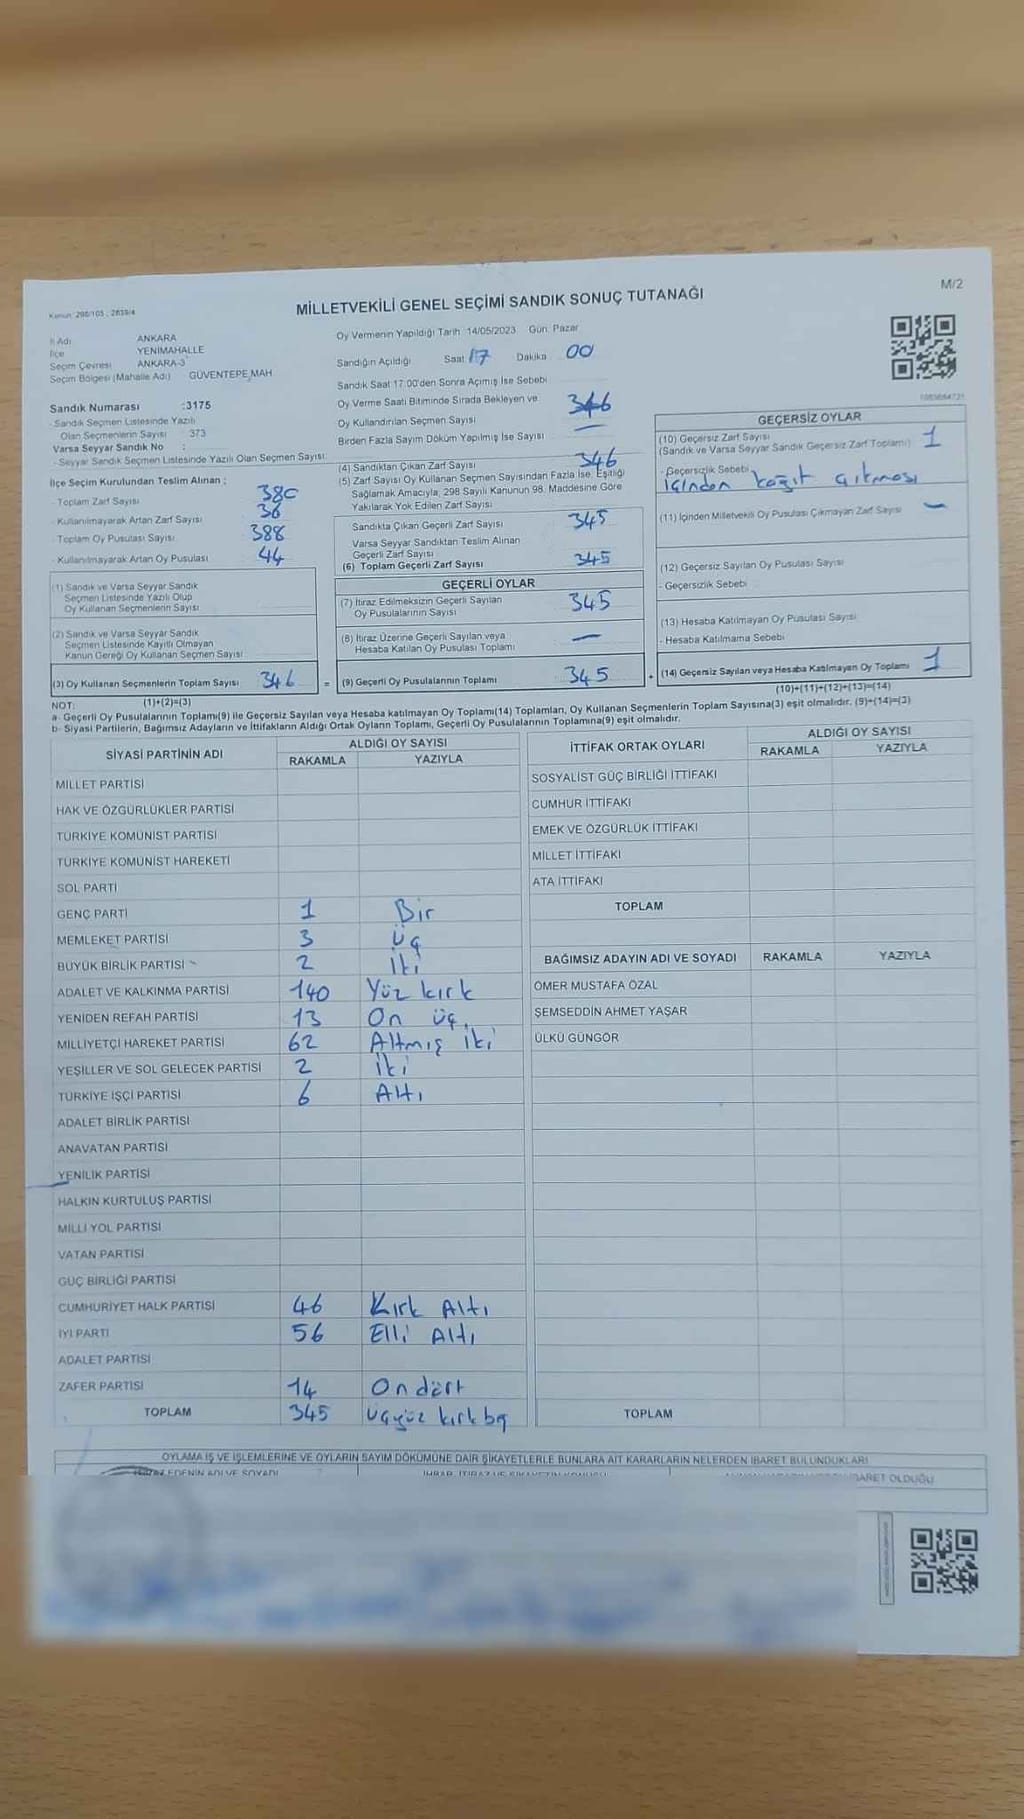 M/2
Kanun: 298/105 , 2839/4
MİLLETVEKİLİ GENEL SEÇİMİ SANDIK SONUÇ TUTANAĞI
İl Adı ANKARA
İlçe YENİMAHALLE
Seçim Çevresi ANKARA-3
Seçim Bölgesi (Mahalle Adı) GÜVENTEPE MAH
Sandık Numarası :3175
- Sandık Seçmen Listesinde Yazılı
Olan Seçmenlerin Sayısı 373
Varsa Seyyar Sandık No :
- Seyyar Sandık Seçmen Listesinde Yazılı Olan Seçmen Sayısı:
İlçe Seçim Kurulundan Teslim Alınan ;
- Toplam Zarf Sayısı 380
- Kullanılmayarak Artan Zarf Sayısı 36
- Toplam Oy Pusulası Sayısı 388
- Kullanılmayarak Artan Oy Pusulası 44
(1) Sandık ve Varsa Seyyar Sandık
Seçmen Listesinde Yazılı Olup
Oy Kullanan Seçmenlerin Sayısı
(2) Sandık ve Varsa Seyyar Sandık
Seçmen Listesinde Kayıtlı Olmayan
Kanun Gereği Oy Kullanan Seçmen Sayısı
(3) Oy Kullanan Seçmenlerin Toplam Sayısı 346 =
(1)+(2)=(3)
Oy Vermenin Yapıldığı Tarih 14/05/2023 Gün: Pazar
Sandığın Açıldığı Saat 17 Dakika 00
Sandık Saat 17:00'den Sonra Açılmış İse Sebebi
Oy Verme Saati Bitiminde Sırada Bekleyen ve
Oy Kullandırılan Seçmen Sayısı 346
Birden Fazla Sayım Döküm Yapılmış İse Sayısı
(4) Sandıktan Çıkan Zarf Sayısı 346
(5) Zarf Sayısı Oy Kullanan Seçmen Sayısından Fazla İse, Eşitliği
Sağlamak Amacıyla, 298 Sayılı Kanunun 98. Maddesine Göre
Yakılarak Yok Edilen Zarf Sayısı
Sandıkta Çıkan Geçerli Zarf Sayısı 345
Varsa Seyyar Sandıktan Teslim Alınan
Geçerli Zarf Sayısı
(6) Toplam Geçerli Zarf Sayısı 345
GEÇERLİ OYLAR
(7) İtiraz Edilmeksizin Geçerli Sayılan
Oy Pusulalarının Sayısı 345
(8) İtiraz Üzerine Geçerli Sayılan veya
Hesaba Katılan Oy Pusulası Toplamı —
(9) Geçerli Oy Pusulalarının Toplamı 345 +
GEÇERSİZ OYLAR
(10) Geçersiz Zarf Sayısı
(Sandık ve Varsa Seyyar Sandık Geçersiz Zarf Toplamı) 1
- Geçersizlik Sebebi
içinden kağıt çıkması
(11) İçinden Milletvekili Oy Pusulası Çıkmayan Zarf Sayısı —
(12) Geçersiz Sayılan Oy Pusulası Sayısı
- Geçersizlik Sebebi
(13) Hesaba Katılmayan Oy Pusulası Sayısı
- Hesaba Katılmama Sebebi
(14) Geçersiz Sayılan veya Hesaba Katılmayan Oy Toplamı 1
(10)+(11)+(12)+(13)=(14)
NOT:
a- Geçerli Oy Pusulalarının Toplamı(9) ile Geçersiz Sayılan veya Hesaba Katılmayan Oy Toplamı(14) Toplamları, Oy Kullanan Seçmenlerin Toplam Sayısına(3) eşit olmalıdır. (9)+(14)=(3)
b- Siyasi Partilerin, Bağımsız Adayların ve İttifakların Aldığı Ortak Oyların Toplamı, Geçerli Oy Pusulalarının Toplamına(9) eşit olmalıdır.
SİYASİ PARTİNİN ADI ALDIĞI OY SAYISI
RAKAMLA YAZIYLA
MİLLET PARTİSİ
HAK VE ÖZGÜRLÜKLER PARTİSİ
TÜRKİYE KOMÜNİST PARTİSİ
TÜRKİYE KOMÜNİST HAREKETİ
SOL PARTİ
GENÇ PARTİ 1 Bir
MEMLEKET PARTİSİ 3 Üç
BÜYÜK BİRLİK PARTİSİ 2 İki
ADALET VE KALKINMA PARTİSİ 140 Yüz kırk
YENİDEN REFAH PARTİSİ 13 On üç
MİLLİYETÇİ HAREKET PARTİSİ 62 Altmış İki
YEŞİLLER VE SOL GELECEK PARTİSİ 2 İki
TÜRKİYE İŞÇİ PARTİSİ 6 Altı
ADALET BİRLİK PARTİSİ
ANAVATAN PARTİSİ
YENİLİK PARTİSİ
HALKIN KURTULUŞ PARTİSİ
MİLLİ YOL PARTİSİ
VATAN PARTİSİ
GÜÇ BİRLİĞİ PARTİSİ
CUMHURİYET HALK PARTİSİ 46 Kırk Altı
İYİ PARTİ 56 Elli Altı
ADALET PARTİSİ
ZAFER PARTİSİ 14 On dört
TOPLAM 345 üçyüz kırkbeş
İTTİFAK ORTAK OYLARI ALDIĞI OY SAYISI
RAKAMLA YAZIYLA
SOSYALİST GÜÇ BİRLİĞİ İTTİFAKI
CUMHUR İTTİFAKI
EMEK VE ÖZGÜRLÜK İTTİFAKI
MİLLET İTTİFAKI
ATA İTTİFAKI
TOPLAM
BAĞIMSIZ ADAYIN ADI VE SOYADI RAKAMLA YAZIYLA
ÖMER MUSTAFA ÖZAL
ŞEMSEDDİN AHMET YAŞAR
ÜLKÜ GÜNGÖR
TOPLAM
OYLAMA İŞ VE İŞLEMLERİNE VE OYLARIN SAYIM DÖKÜMÜNE DAİR ŞİKAYETLERLE BUNLARA AİT KARARLARIN NELERDEN İBARET BULUNDUKLARI
İBARET OLDUĞU